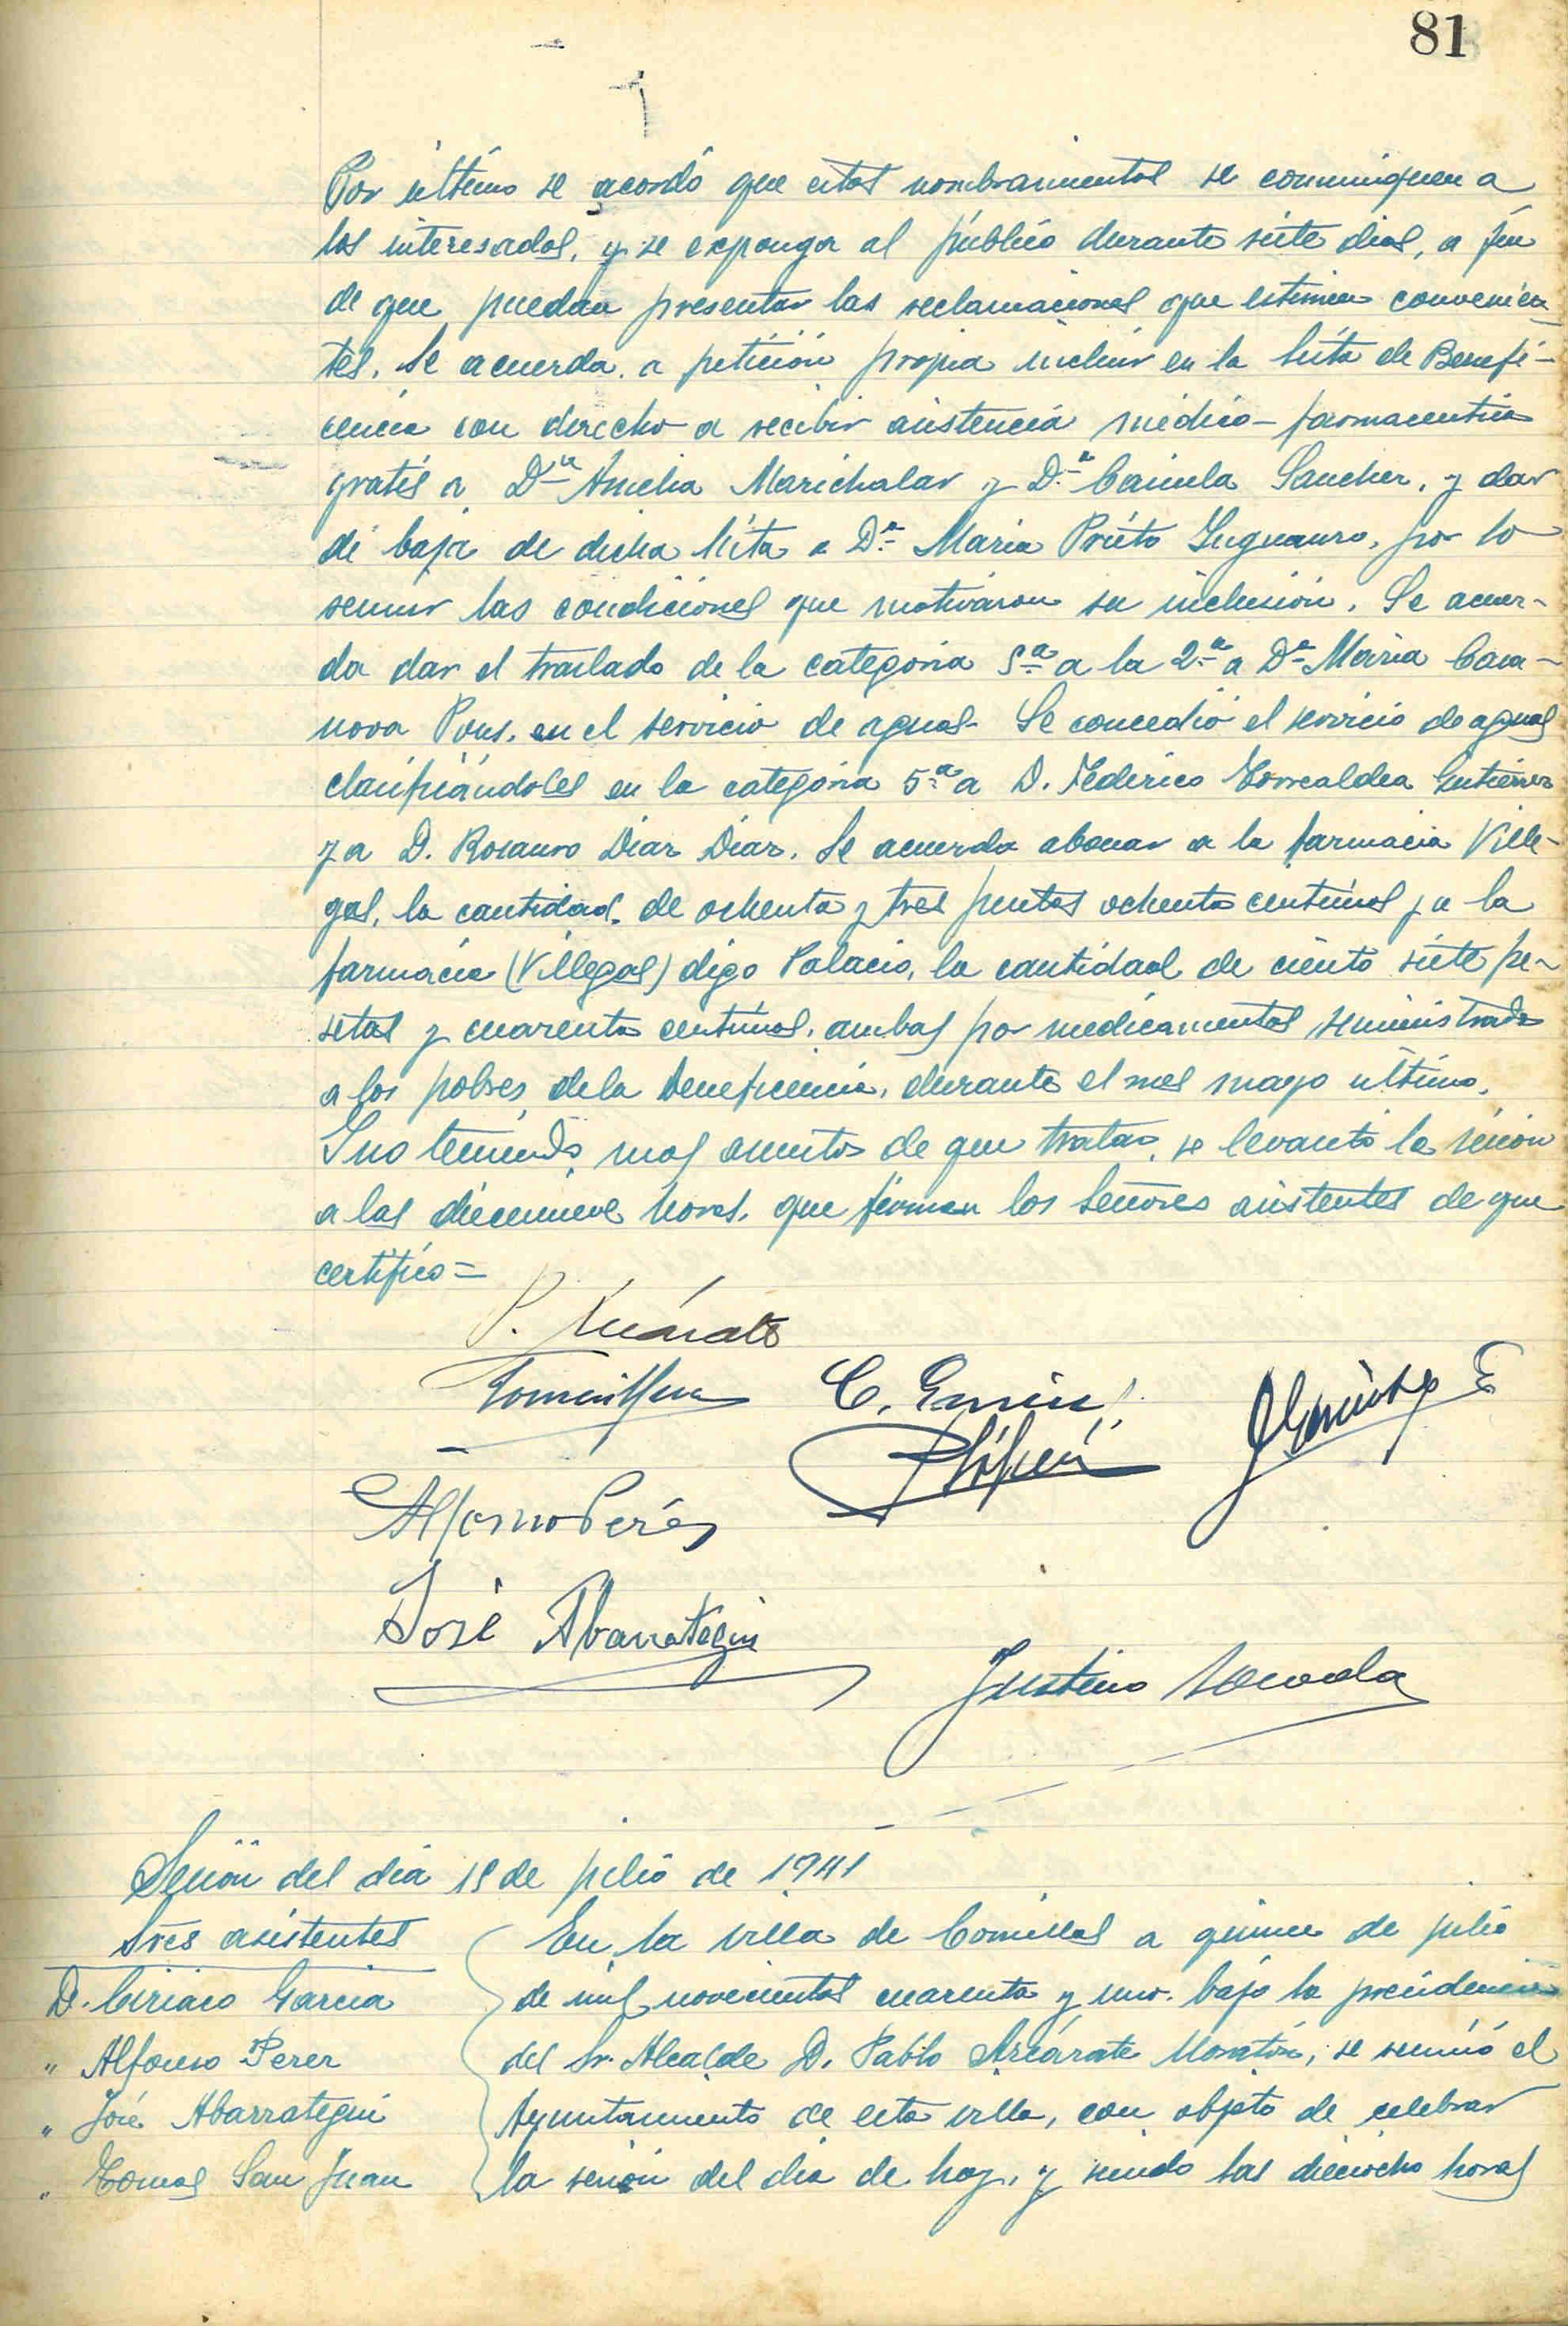 81
Por último se acordó que estos nombramientos se comuniquen a
los interesados, y se exponga al público durante siete dias, a fin
de que puedan presentar las reclamaciones que estimen convenien-
tes. Se acuerda a petición propia incluir en la lista de Benefi-
cencia con derecho a recibir asistencia médico-farmaceutica
gratis a Dª Amelia Marichalar y D.ª Camila Sanchez, y dar
de baja de dicha lista a D.ª Maria Prieto, por lo
reunir las condiciones que motivaron su inclusión. Se acuer-
da dar el traslado de la categoria 5ª a la 2ª a Dª Maria Casa-
nova Pons, en el servicio de aguas. Se concedió el servicio de aguas
clasificándoles en la categoria 5ª a D. Federico Torrealdea Gutierrez
y a D. Rosauro Diaz Diaz. Se acuerda abonar a la farmacia Ville-
gas, la cantidad de ochenta y tres pesetas ochenta centimos y a la
farmacia (Villegas) digo Palacio, la cantidad de ciento siete pe-
setas y cuarenta centimos, ambas por medicamentos suministrado
a los pobres de la beneficencia, durante el mes mayo último.
Y no teniendo mas asuntos de que tratar, se levantó la sesion
a las diecinueve horas, que firman los Señores asistentes de que
certifico=
P. Azcárate
C. García
Alfonso Pérez
José Abarrategui
Justino
Sesión del dia 15 de julio de 1941
Sres asistentes
D. Ciriaco Garcia
" Alfonso Perez
" José Abarrategui
" Tomas San Juan
En la villa de Comillas a quince de julio
de mil novecientos cuarenta y uno, bajo la presidencia
del Sr. Alcalde D. Pablo Azcárate Monatón, se reunió el
Ayuntamiento de esta villa, con objeto de celebrar
la sesión del dia de hoy, y siendo las dieciocho horas